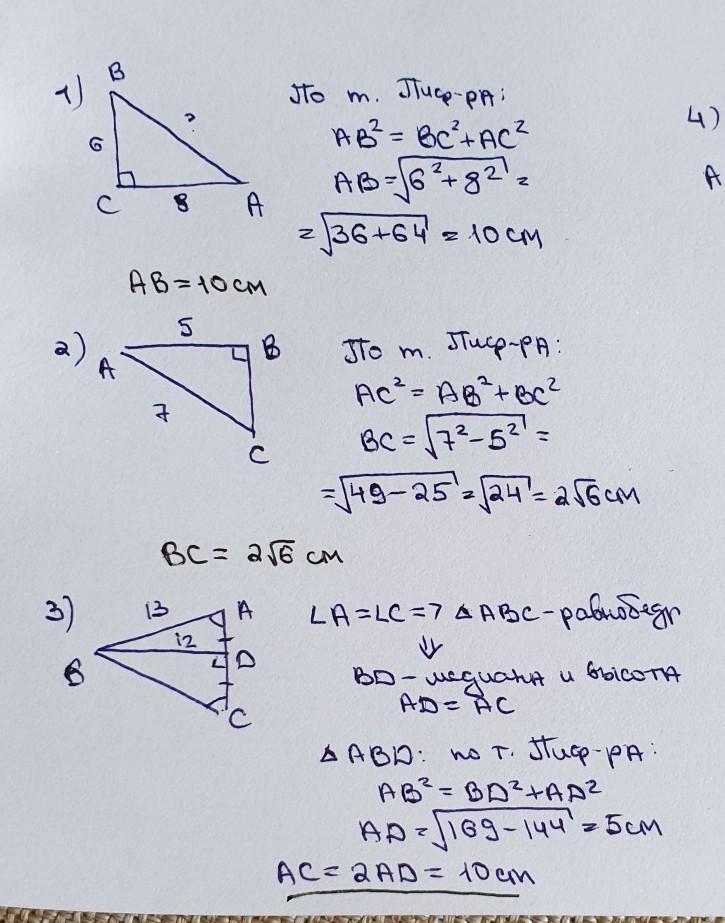 1)
B
6
?
C
8
A
По т. Пиф-ра:
AB² = BC² + AC²
AB = √6² + 8² =
= √36 + 64 = 10 см
AB = 10 см
4)
A
2)
5
A
B
7
C
По т. Пиф-ра:
AC² = AB² + BC²
BC = √7² - 5² =
= √49 - 25 = √24 = 2√6 см
BC = 2√6 см
3)
13
A
12
Б
D
C
∠A = ∠C => △ABC - равнобедр
⇓
BD - медиана и высота
AD = AC
△ABD: по т. Пиф-ра:
AB² = BD² + AD²
AD = √169 - 144 = 5 см
AC = 2AD = 10 cm